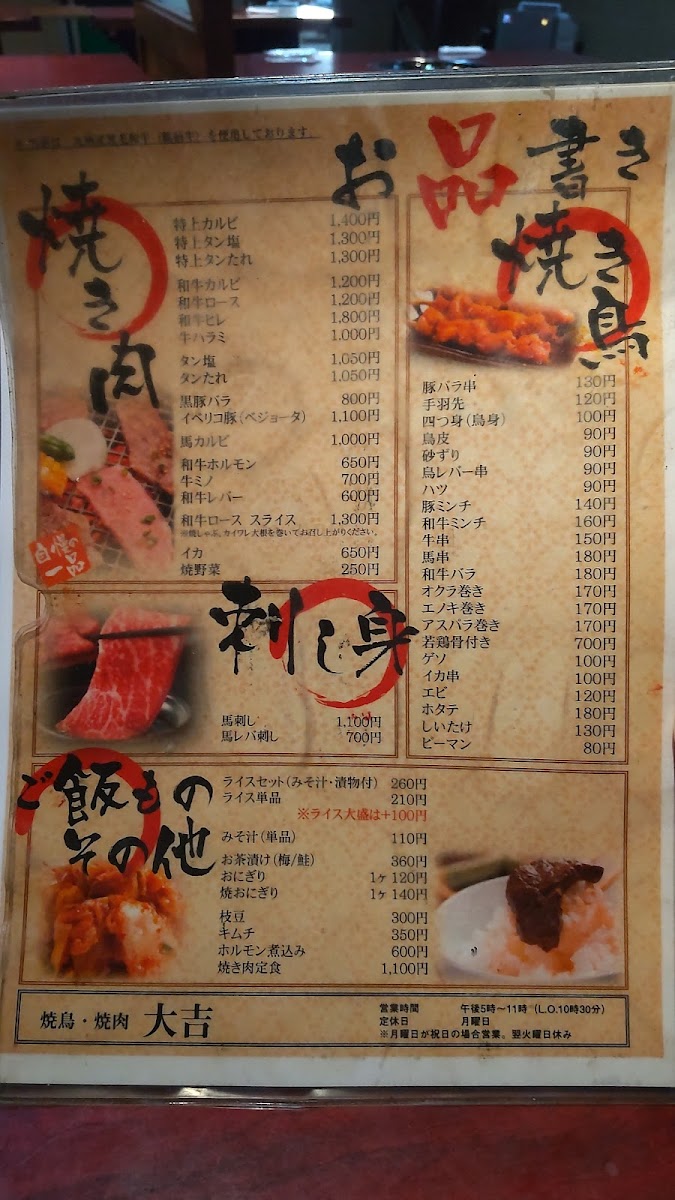 九州産黒毛和牛 (飯前牛) を使用しております。
お品書き
焼き肉
特上カルビ 1,400円
特上タン塩 1,300円
特上タンたれ 1,300円
和牛カルビ 1,200円
和牛ロース 1,200円
和牛ヒレ 1,800円
牛ハラミ 1,000円
タン塩 1,050円
タンたれ 1,050円
黒豚バラ 800円
イベリコ豚(ベジョータ) 1,100円
馬カルビ 1,000円
和牛ホルモン 650円
牛ミノ 700円
和牛レバー 600円
和牛ロース スライス 1,300円
※焼しゃぶ。カイワレ大根を巻いてお召し上がりください。
イカ 650円
焼野菜 250円
自慢の一品
焼き鳥
豚バラ串 130円
手羽先 120円
四つ身(鳥身) 100円
鳥皮 90円
砂ずり 90円
鳥レバー串 90円
ハツ 90円
豚ミンチ 140円
和牛ミンチ 160円
牛串 150円
馬串 180円
和牛バラ 180円
オクラ巻き 170円
エノキ巻き 170円
アスパラ巻き 170円
若鶏骨付き 700円
ゲソ 100円
イカ串 100円
エビ 120円
ホタテ 180円
しいたけ 130円
ピーマン 80円
刺し身
馬刺し 1,100円
馬レバ刺し 700円
ご飯もの
その他
ライスセット(みそ汁・漬物付) 260円
ライス単品 210円
※ライス大盛は+100円
みそ汁(単品) 110円
お茶漬け(梅/鮭) 360円
おにぎり 1ヶ 120円
焼おにぎり 1ヶ 140円
枝豆 300円
キムチ 350円
ホルモン煮込み 600円
焼き肉定食 1,100円
焼鳥・焼肉 大吉
営業時間 午後5時〜11時 (L.O.10時30分)
定休日 月曜日
※月曜日が祝日の場合営業。翌火曜日休み